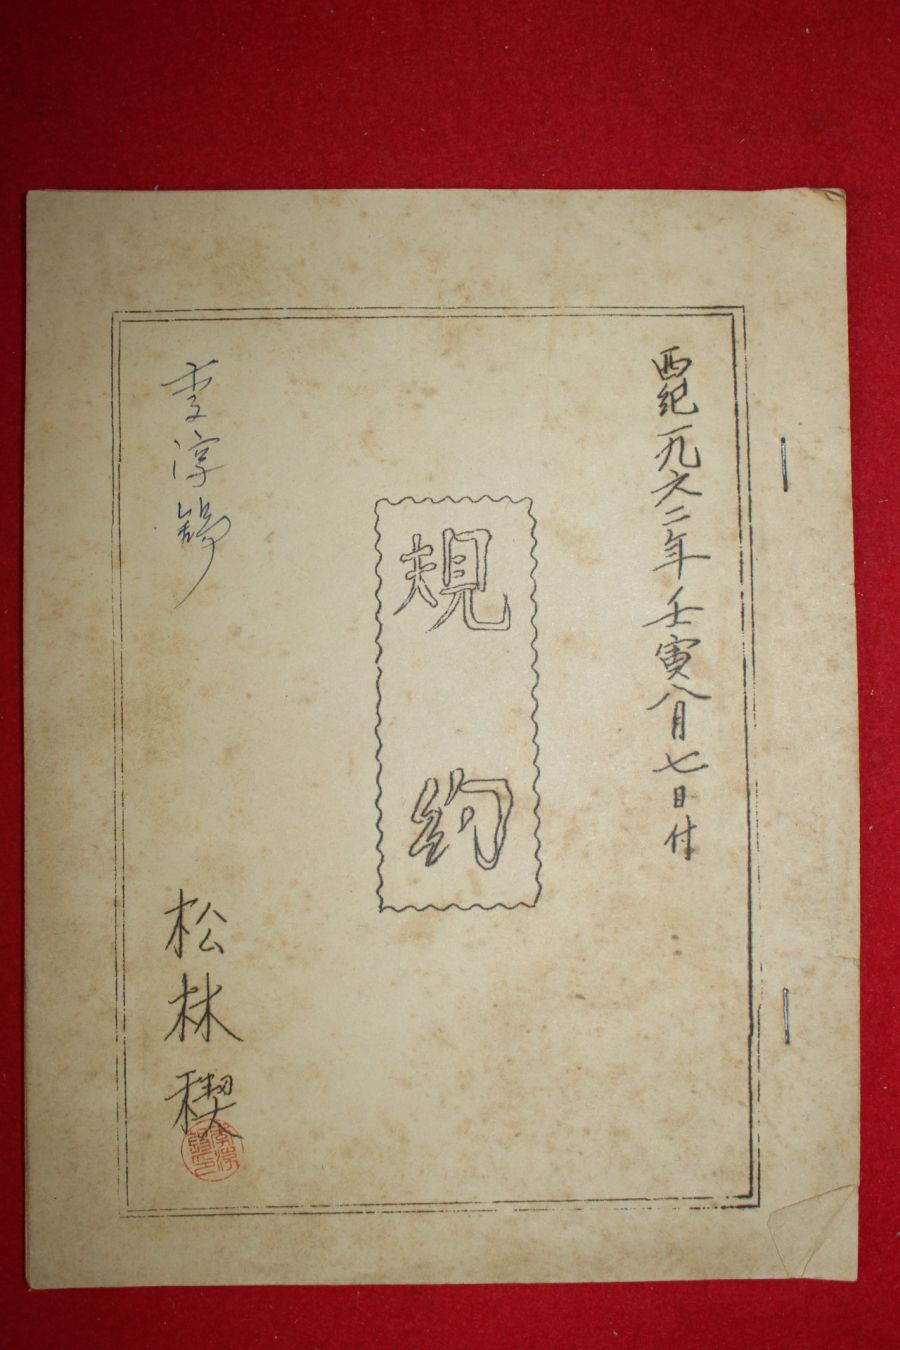 西紀一九六二年壬寅八月七日付
規約
李淳錫
松林稧